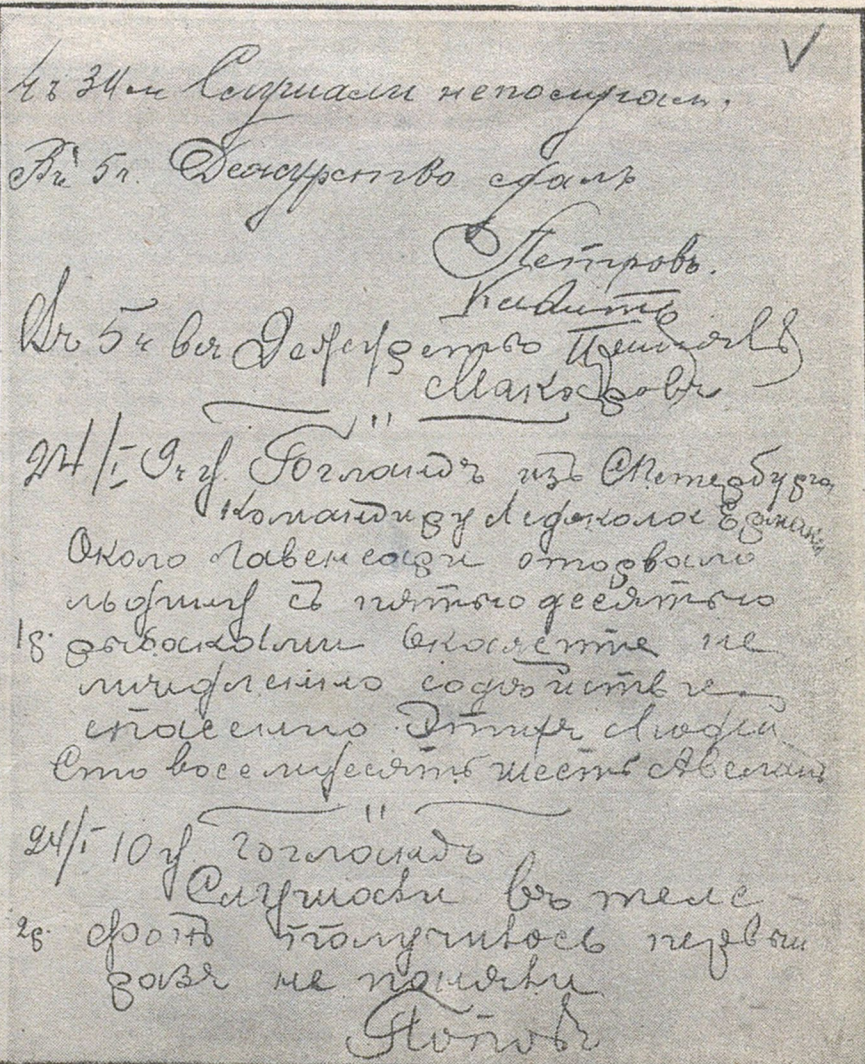 4ч 34м Слушали непослухали.
Вч 5ч. Дежурство сдалъ
Петровъ.
Въ 5ч веч Дежурство Принялъ
Макаровъ
24/I 9ч у. Гогландъ изъ СПетербурга
Командиру Ледокола Ермакъ
Около Лавенсари оторвало
льдину съ пятьюдесятью
1р. рыбаками Окажите не
медленно содѣйствие
спасению Этихъ Людей
Сто восемьдесятъ шесть Авелан
24/I 10 у Гогландъ
Слушали въ теле
2р. фонъ получилось первый
разъ не поняли
Поповъ